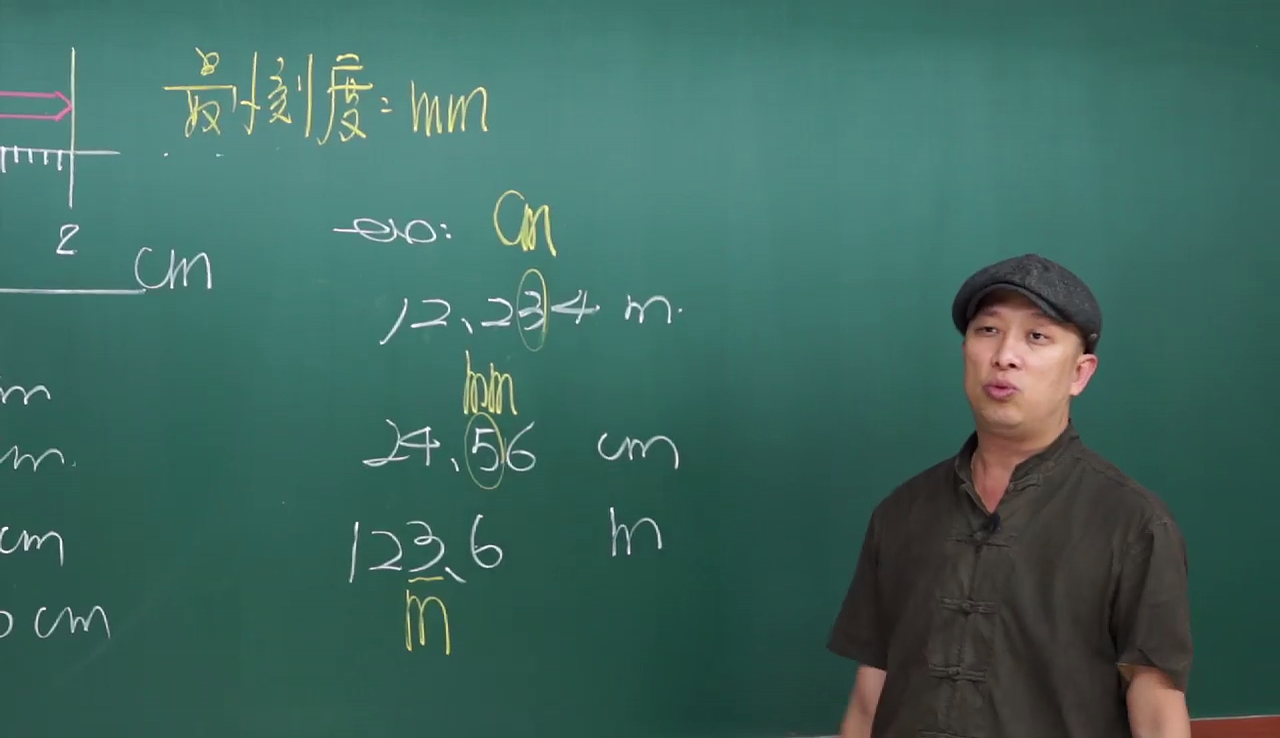 最小刻度=mm
2
cm
cm
12.234 m
m
mm
m
24.56 cm
cm
123.6 m
cm
m